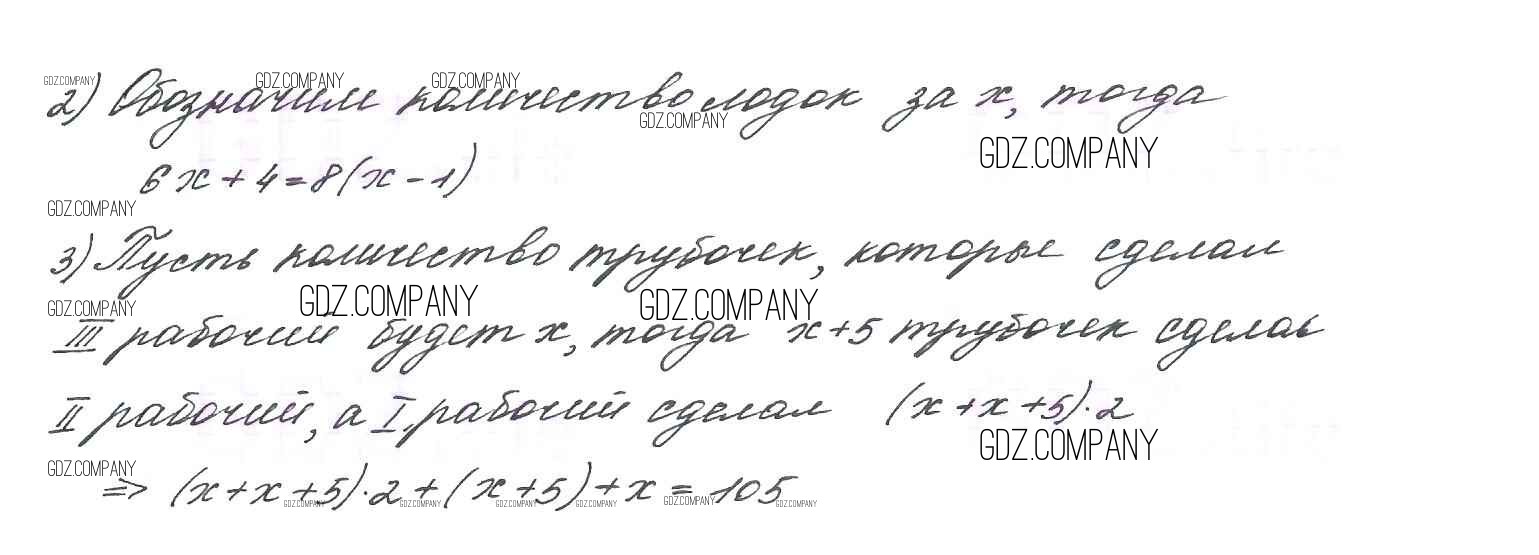 GDZ.COMPANY GDZ.COMPANY GDZ.COMPANY
2) Обозначим количество лодок за x, тогда
GDZ.COMPANY
GDZ.COMPANY
6x + 4 = 8(x - 1)
GDZ.COMPANY
3) Пусть количество трубочек, которые сделал
GDZ.COMPANY GDZ.COMPANY GDZ.COMPANY
III рабочий будет x, тогда x+5 трубочек сделал
II рабочий, а I рабочий сделал (x+x+5)·2
GDZ.COMPANY
GDZ.COMPANY
=> (x+x+5)·2+(x+5)+x=105
GDZ.COMPANY GDZ.COMPANY GDZ.COMPANY GDZ.COMPANY GDZ.COMPANY GDZ.COMPANY